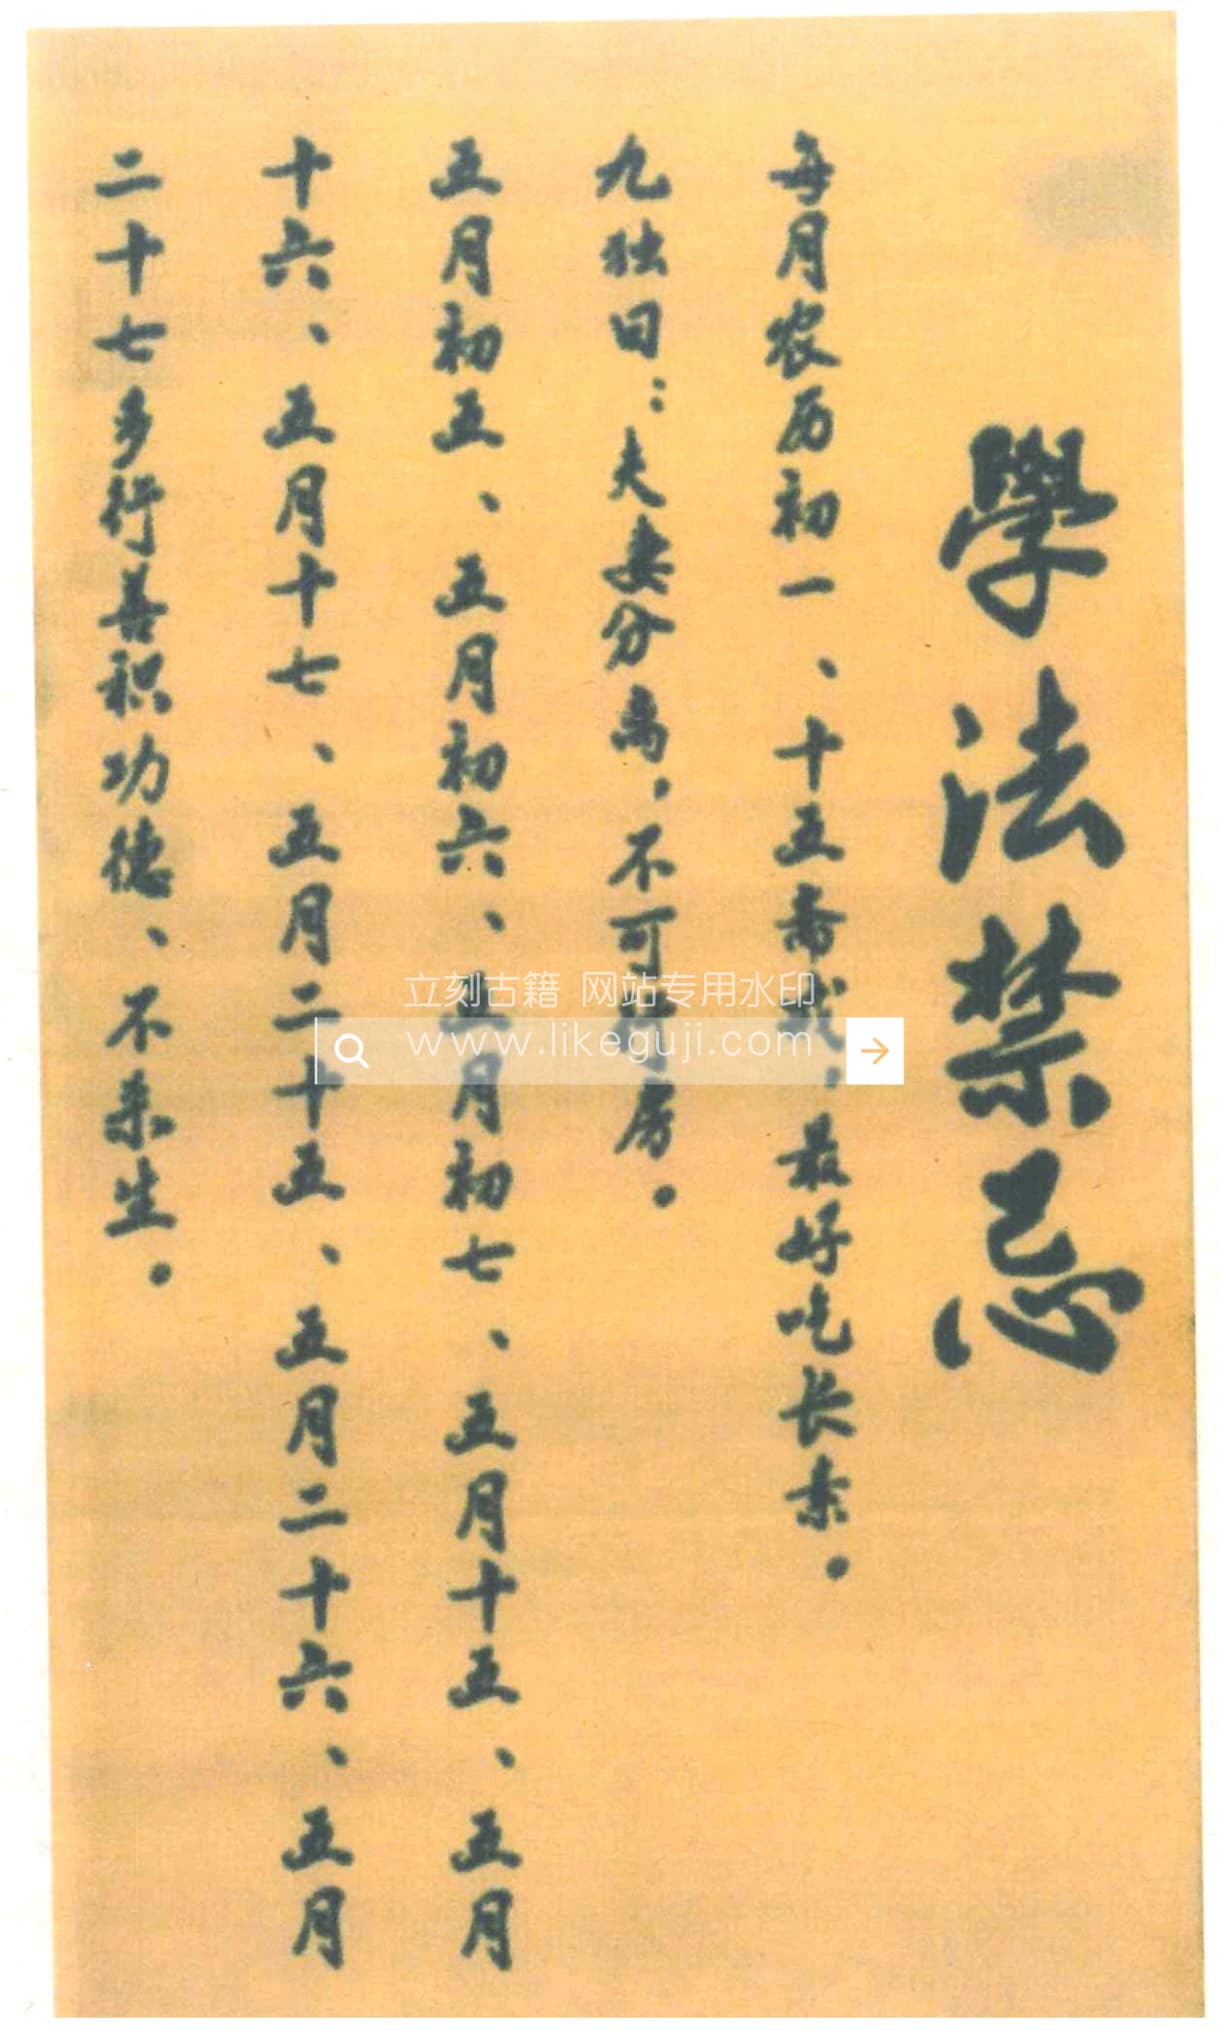 學法禁忌
每月农历初一、十五斋戒，最好吃长素。
九独日：夫妻分离，不可行房。
五月初五、五月初六、五月初七、五月十五、五月
十六、五月十七、五月二十五、五月二十六、五月
二十七多行善积功德、不杀生。
立刻古籍 网站专用水印
www.likeguji.com